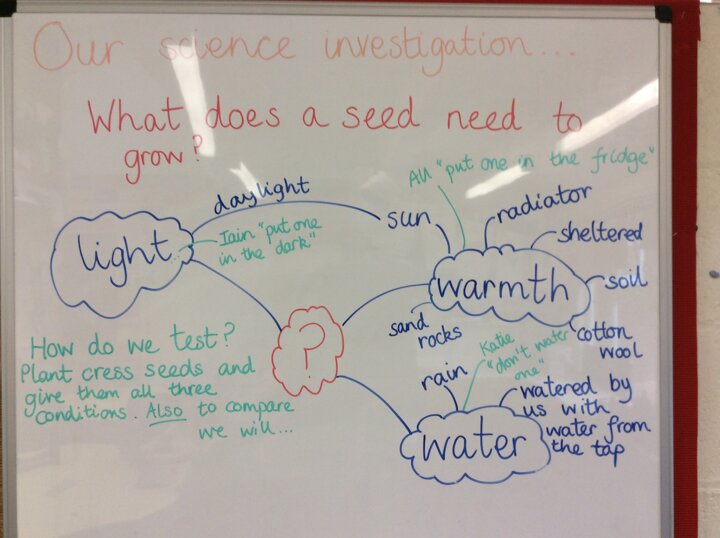 Our science investigation...
What does a seed need to
grow?
All "put one in the fridge"
daylight
sun
radiator
sheltered
light
Iain "put one
in the dark"
warmth
soil
sand
rocks
cotton
wool
?
How do we test?
Plant cress seeds and
give them all three
conditions. Also to compare
we will...
Katie
"don't water
one"
rain
watered by
us with
water from
the tap
water